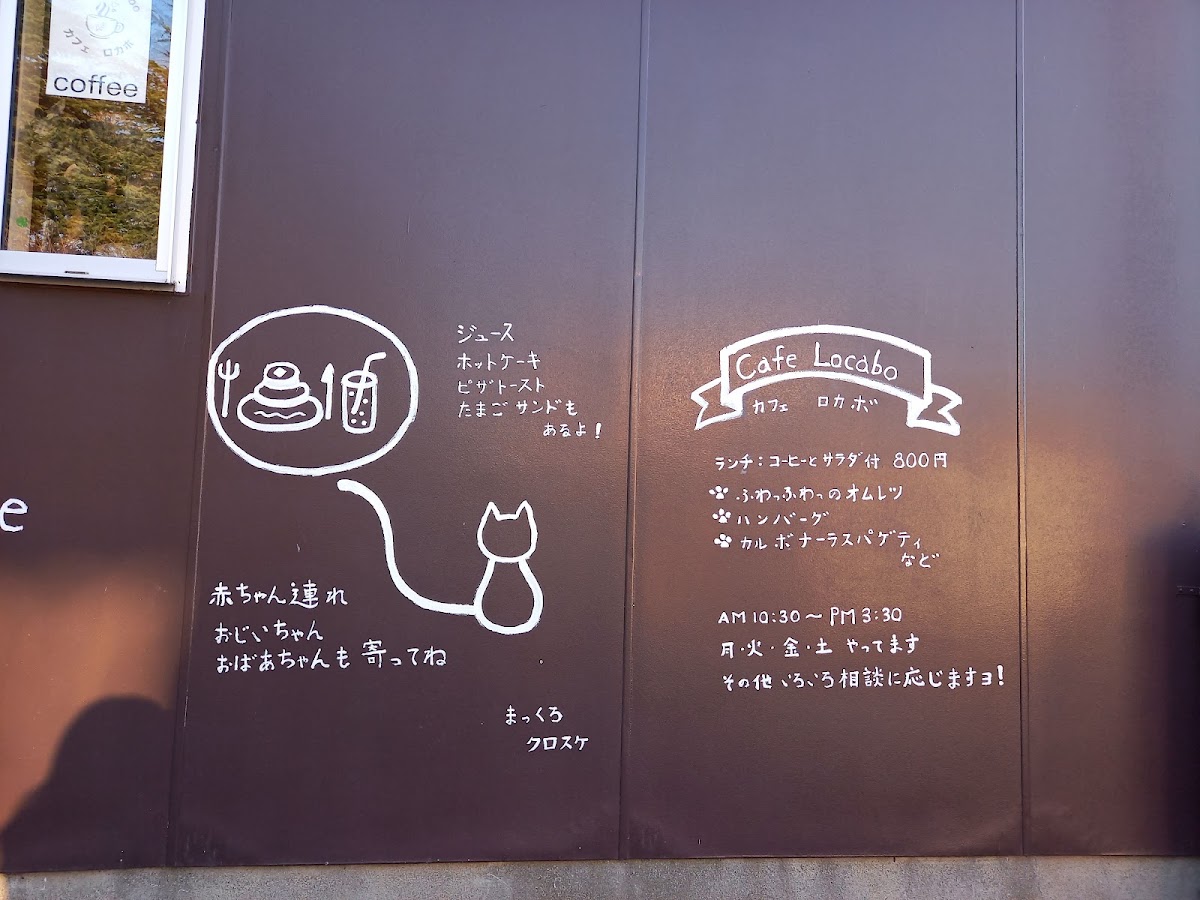 カフェ ロカボ
coffee
e
ジュース
ホットケーキ
ピザトースト
たまごサンドも
あるよ!
赤ちゃん連れ
おじいちゃん
おばあちゃんも寄ってね
まっくろ
クロスケ
Cafe Locabo
カフェ ロカボ
ランチ:コーヒーとサラダ付 800円
ふわっふわっのオムレツ
ハンバーグ
カルボナーラスパゲティ
など
AM 10:30〜PM 3:30
月・火・金・土 やってます
その他 いろいろ相談に応じますヨ!